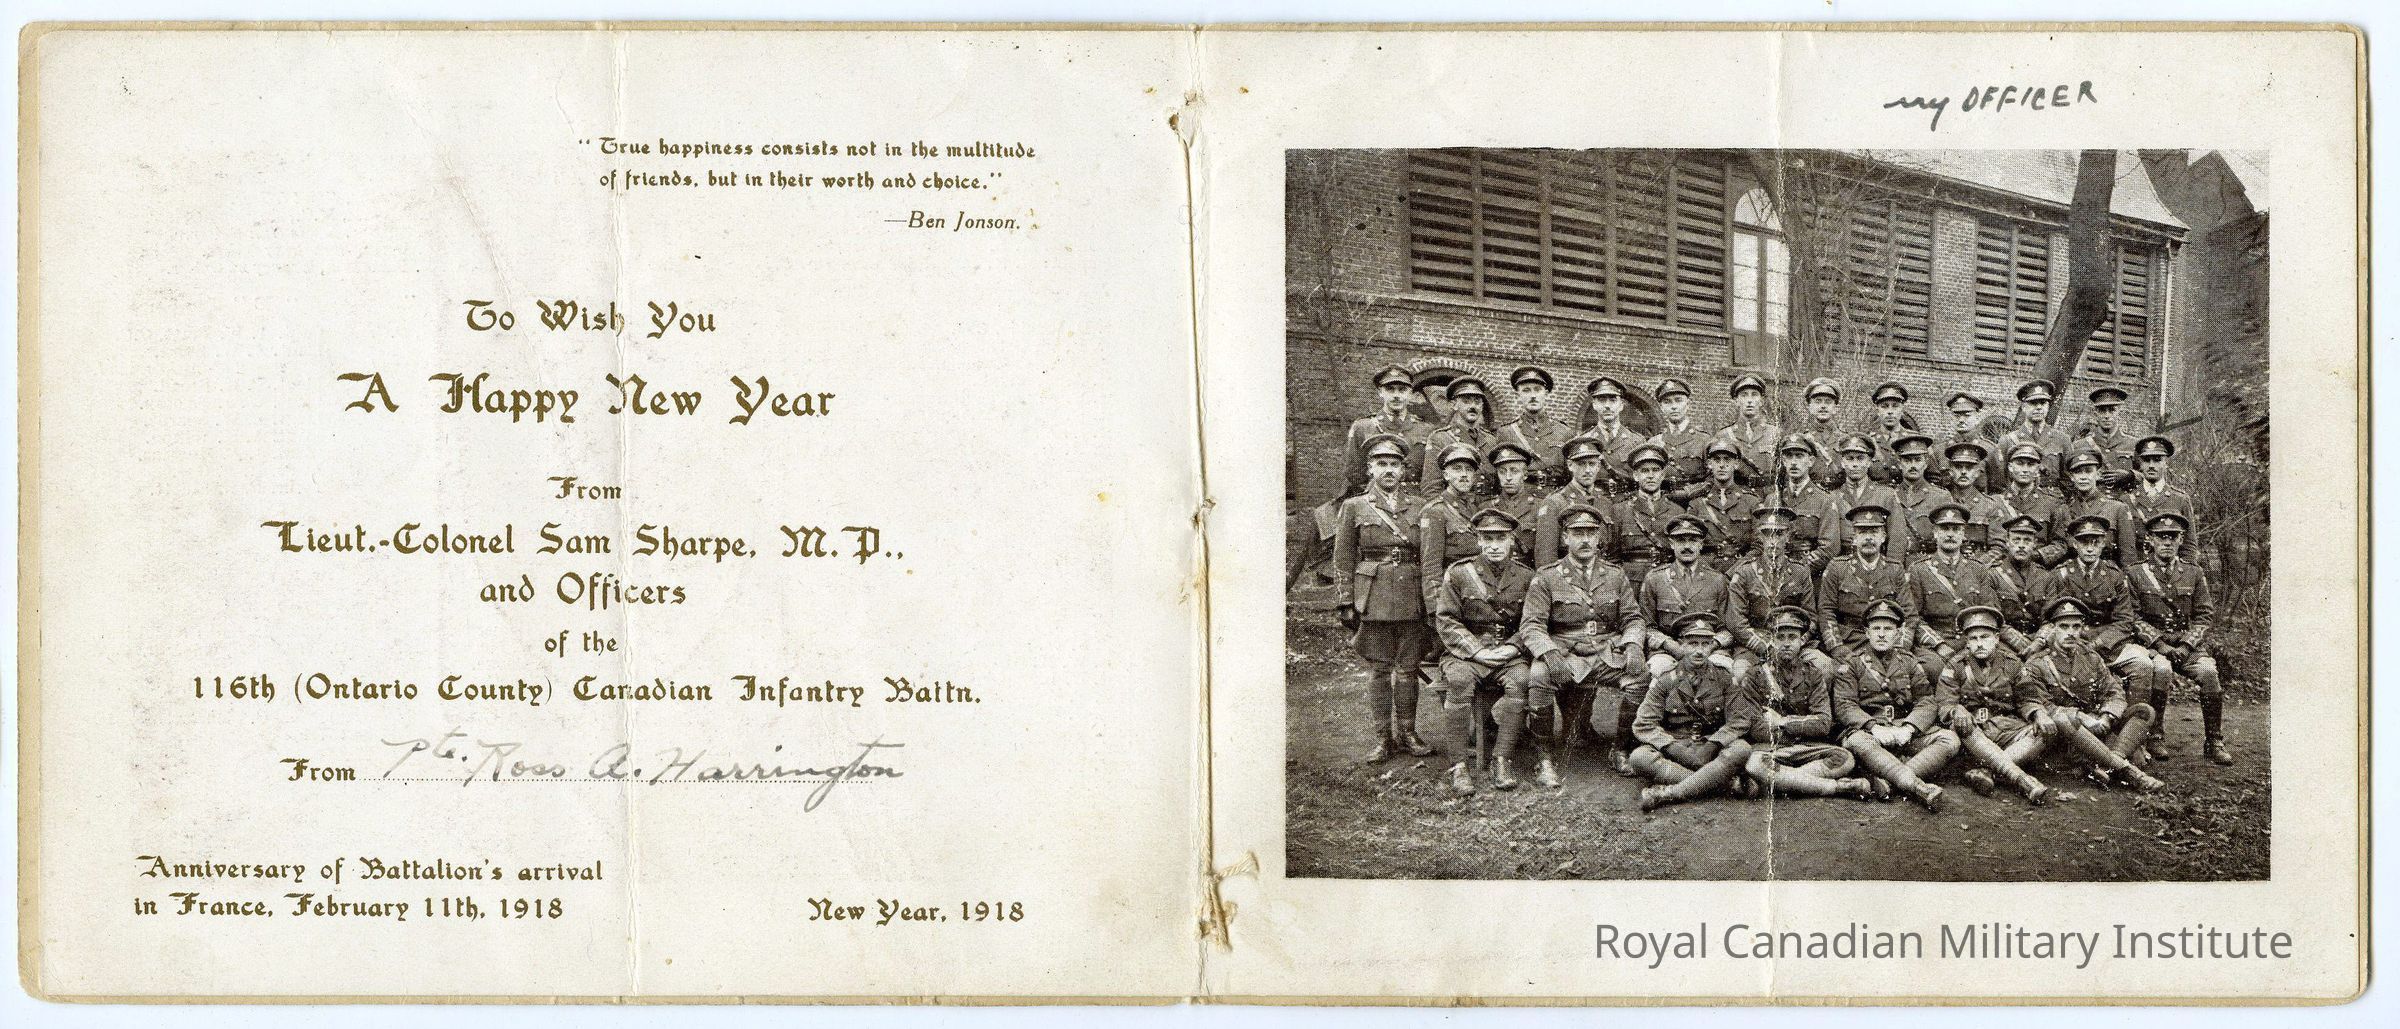 "True happiness consists not in the multitude
of friends, but in their worth and choice."
—Ben Jonson.
To Wish You
A Happy New Year
From
Lieut.-Colonel Sam Sharpe, M.P.,
and Officers
of the
116th (Ontario County) Canadian Infantry Battn.
From Pte. Ross A. Harrington
Anniversary of Battalion's arrival
in France, February 11th, 1918
New Year, 1918
my OFFICER
Royal Canadian Military Institute